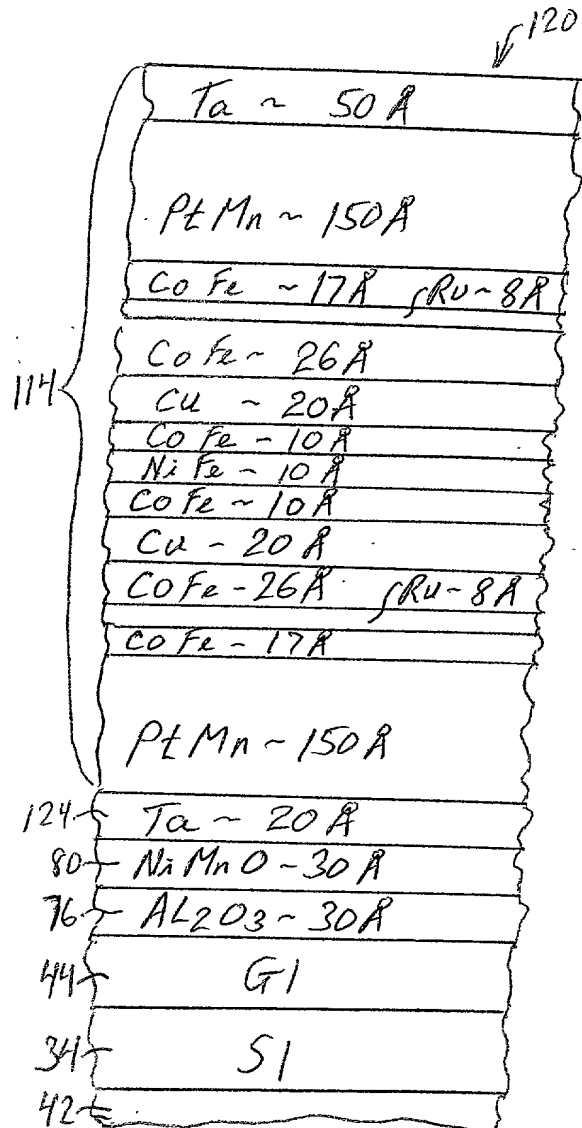 120
Ta ~ 50Å
PtMn ~ 150Å
CoFe ~ 17Å Ru ~ 8Å
CoFe ~ 26Å
114
Cu ~ 20Å
CoFe - 10Å
NiFe - 10Å
CoFe ~ 10Å
Cu - 20Å
CoFe - 26Å Ru - 8Å
CoFe - 17Å
PtMn ~ 150Å
124 Ta ~ 20Å
80 NiMnO - 30Å
76 AL2O3 ~ 30Å
44 G1
34 S1
42